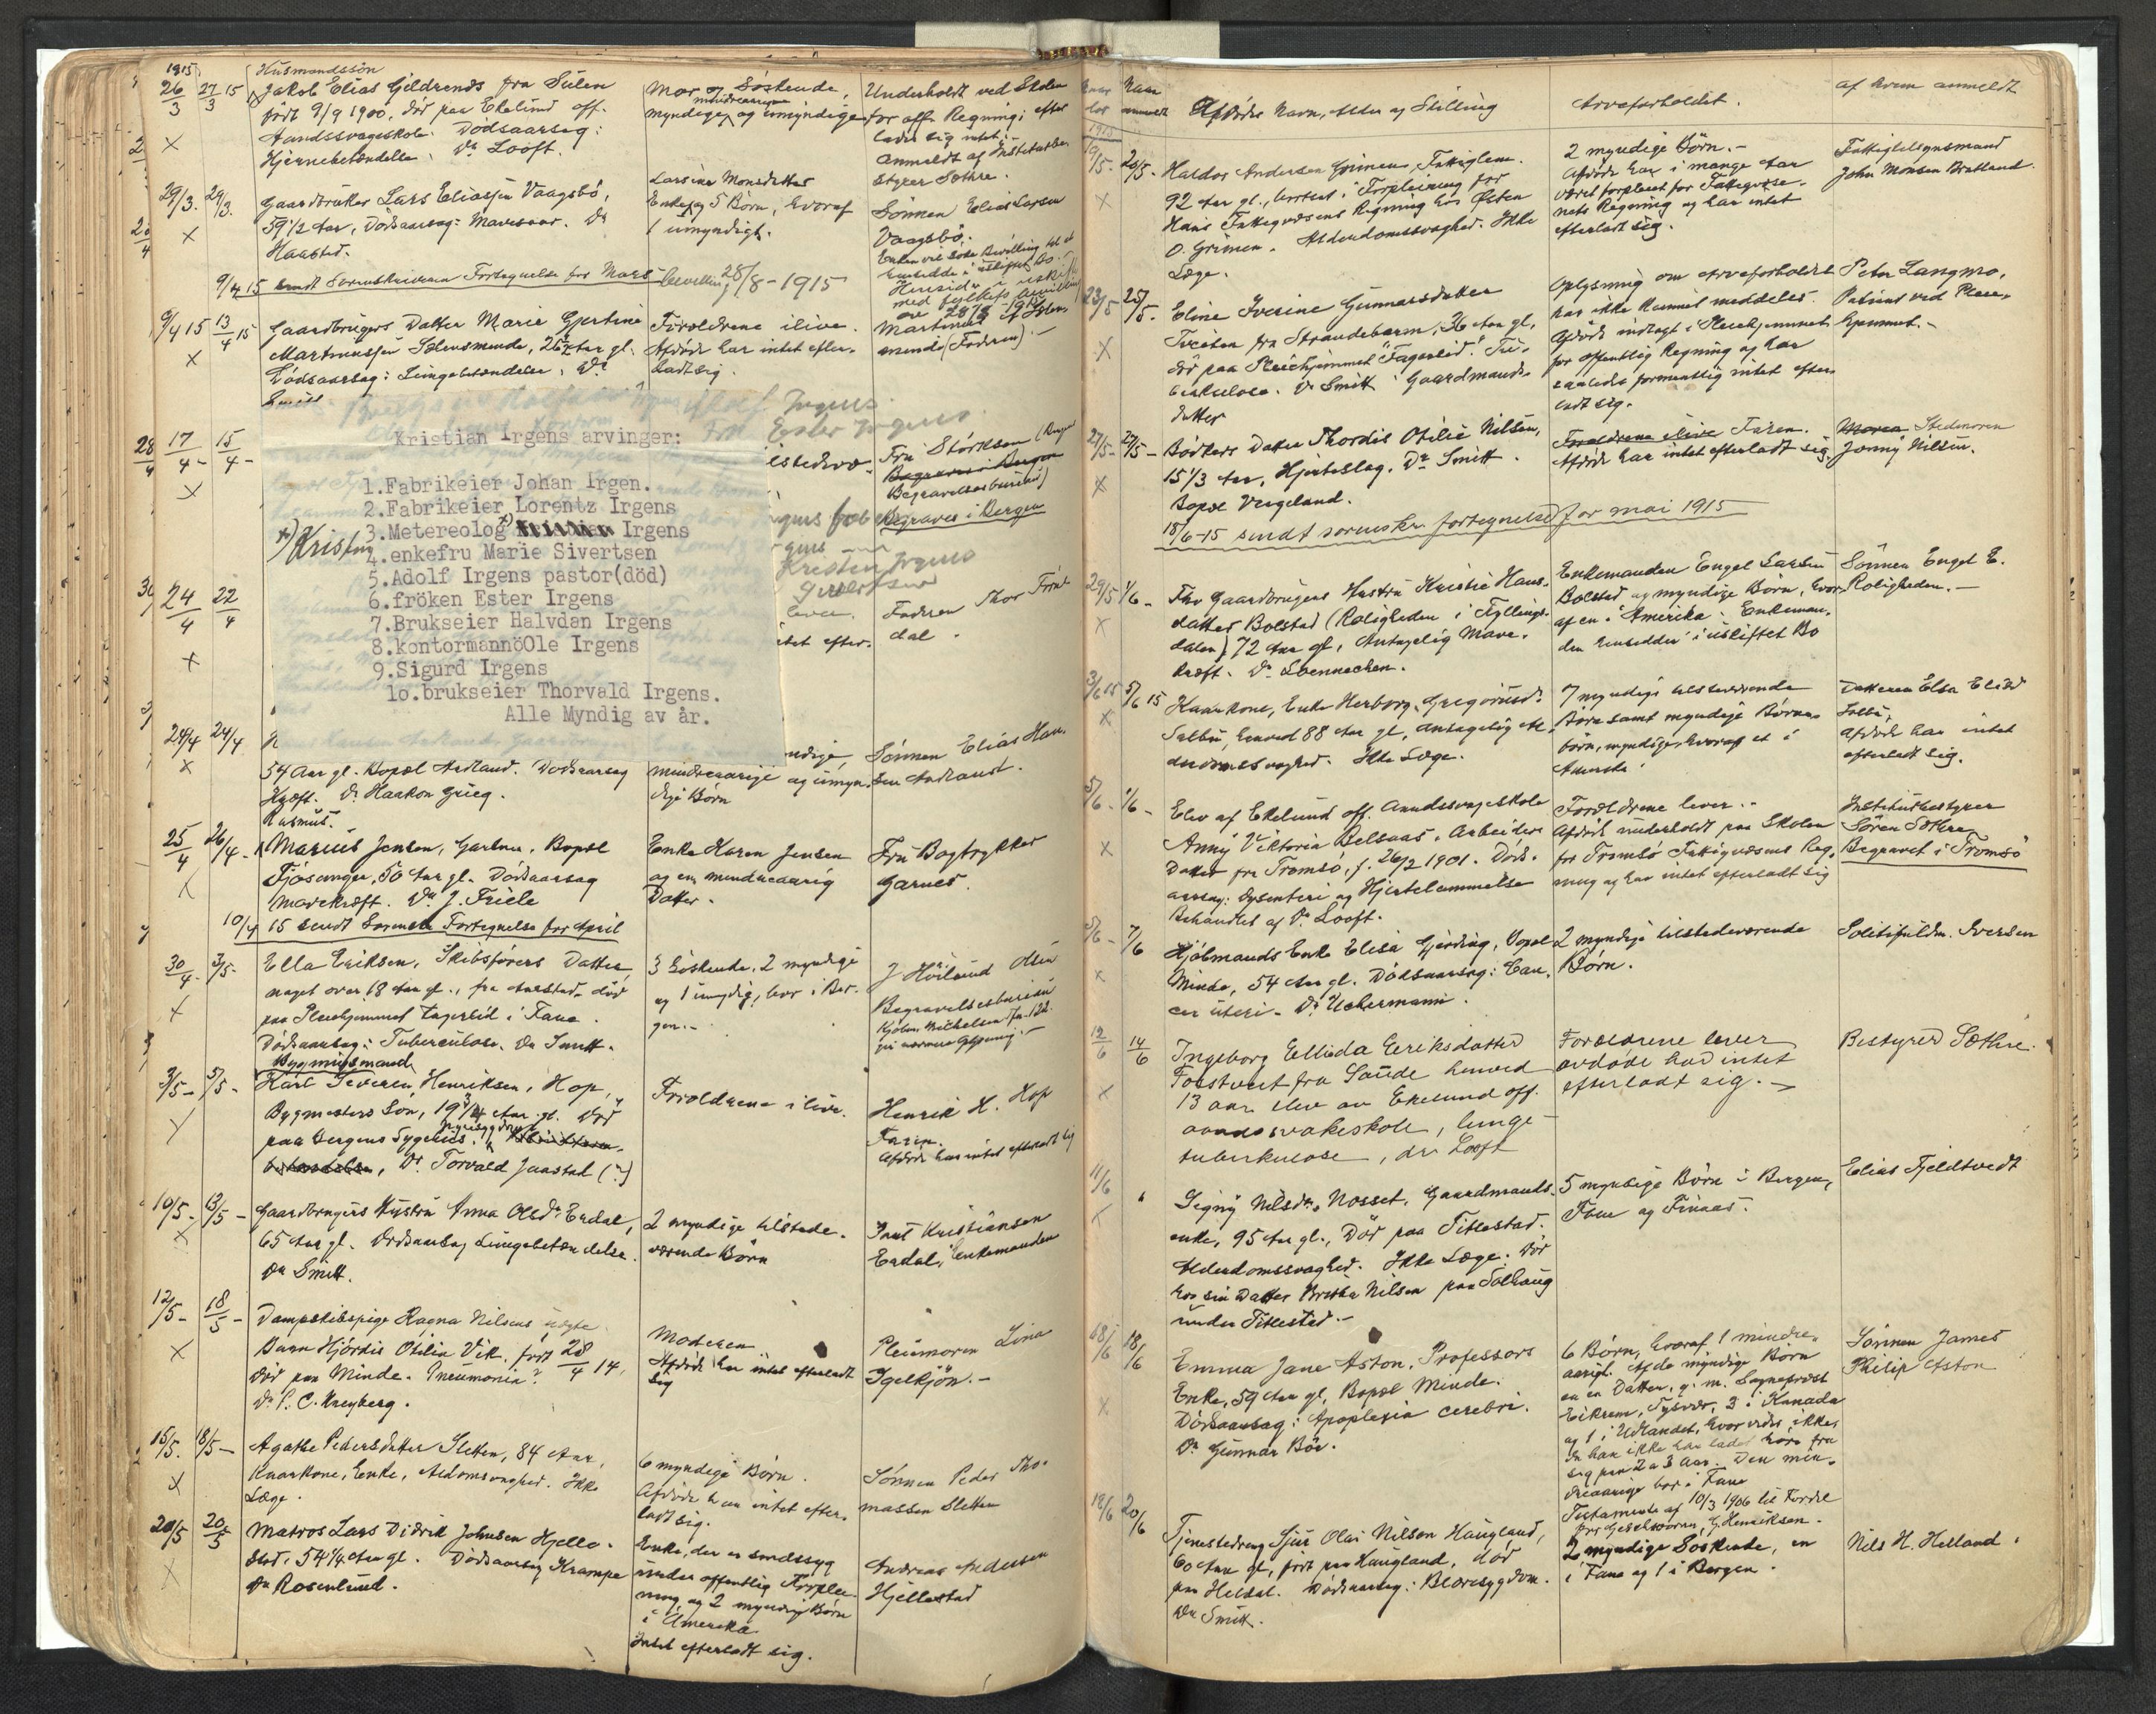 1915
26/3 27/3 15
Husmandssön
Jakob Elias Gildrenes fra Sulen
födt 9/9 1900, död paa Ekelund off.
Aandssvageskole. Dödsaarsag:
Hjernebetændelse. Dr Looft.
Mor og Söskende,
mindreaarige
myndige, og umyndige
Underholdt ved Skolen
for off. Regning; efter
ladt sig intet.
Anmeldt af Institutbe-
styrer Sæthre.
29/3. 29/3.
Gaardbruker Lars Eliassen Vaagsbö,
59 1/2 Aar, Dödsaarsag: Mavesaar. Dr
Haastad.
Larsine Monsdatter
Enke, og 5 Börn, hvoraf
1 umyndigt.
Sönnen Elias Larsen
Vaagsbö.
Enken vil söke Bevilling til at
hensidde i uskiftet Bo.
9/4 15 sendt Sorenskriveren Fortegnelse for Mars
bevilling 28/8-1915
9/4 15 13/4 15
Gaardbrugers Datter Marie Gjertine
Dödsaarsag: Lungebetændelse, Dr
Smitt
Forældrene ilive.
Afdöde har intet efter-
ladt sig.
(Faderen)
17/4 - 15/4 -
Fru Störksen
Begravelsesbureau)
Begraves i Bergen
Kristian Irgens arvinger:
1.Fabrikeier Johan Irgen.
2.Fabrikeier Lorentz Irgens
3.Metereolog x) Irgens
x) Kristen
4.enkefru Marie Sivertsen
5.Adolf Irgens pastor(död)
6.fröken Ester Irgens
7.Brukseier Halvdan Irgens
8.kontormannöOle Irgens
9.Sigurd Irgens
1o.brukseier Thorvald Irgens.
Alle Myndig av år.
Ester Irgens
Kristen Irgens
24/4 22/4
lever.
intet efter.
Faderen Thor
dal.
24/4 24/4
54 Aar gl. Bopæl Aadland. Dödsaarsag
Kræft. Dr Haakon Grieg.
mindreaarige og umyn-
dige Börn
Sönnen Elias Han-
sen Aadland.
25/4 26/4 -
Rasmus
Marius Jensen, Gartner, Bopæl
Fjösanger, 50 Aar gl. Dödsaarsag
Mavekræft. Dr J. Friele
Enke Karen Jensen
og en mindreaarig
Datter.
Fru Bogtrykker
Garnes.
10/4 15 sendt Sorensk. Fortegnelse for April
30/4. 3/5-
Ella Eriksen, Skibsförers Datter
noget over 18 Aar gl., fra Aarstad, död
paa Pleiehjemmet Fagerlid i Fane.
Dödsaarsag: Tuberculose. Dr Smitt.
3 Söskende, 2 myndige
og 1 umyndig, bor i Ber-
gen.-
J Höilund Olsen
Begravelsesbureau
3/5- 5/5-
Bygningsmand
Karl Severin Henriksen, Hop,
Bygmesters Sön, 19 3/4 Aar gl. Död
paa Bergens Sygehus. Nyresygdom
Dr. Torvald Jaastad (?)
Forældrene ilive.
Henrik H. Hop
Faren.
Afdöde har intet efterladt sig
10/5- 13/5-
Gaardbrugers Hustru Anna Olsdr Erdal,
65 Aar gl. Dödsaarsag Lungebetændelse.
Dr Smitt.
2 myndige tilstede-
værende Börn
Knut Kristiansen
Erdal, Enkemanden
12/5- 18/5-
Dampskibspige Ragna Nilsens uægte
Barn Hjördis Otilie Vik. født 28/4 14,
död paa Minde. Pneumonia?
Dr P. C. Kreyberg.
Moderen
Afdöde har intet efterladt
sig
Pleiemoren Lina
Igelkjön.-
15/5. 18/5-
Agathe Pedersdatter Sletten, 84 Aar,
Kaarkone, Enke, Alderdomssvaghed. Ikke
Læge.
6 myndige Börn.
Afdöde har intet efter-
ladt sig.
Sönnen Peder Tho-
massen Sletten
20/5 20/5
Matros Lars Didrik Johnsen Hjelle-
stad, 54 1/4 Aar gl. Dödsaarsag Krampe
Dr Rosenlund.
Enke, der er sindssyg
under offentlig Forplei-
ning, og 2 myndige Börn
i Amerika
Intet efterladt sig.
Andreas Andersen
Hjellestad
Naar
anmeldt
Afdödes Navn, Alder og Stilling
Arveforholdet.
af hvem anmeldt
1915
19/5- 20/5-
Haldor Andersen Grimen, Fattiglem.
92 Aar gl., bortsat i Forpleining for
Haus Fattigvæsens Regning hos Östen
O. Grimen. Alderdomssvaghed. Ikke
Læge.
2 myndige Börn.-
Afdöde har i mange Aar
været forpleiet for Fattigvæse-
nets Regning og har intet
efterladt sig.
Fattigtilsynsmand
John Monsen Bratland.
23/5 25/5-
Eline Iversine Gunnarsdatter
Tveiten fra Strandebarm, 36 Aar gl,
död paa Pleiehjemmet "Fagerlid". Tu-
berkulose. Dr Smitt. Gaardmands-
datter
Oplysning om Arveforholdet
har ikke kunnet meddeles.
Afdöde indlagt i Pleiehjemmet
for offentlig Regning og har
saaledes formentlig intet efter-
ladt sig.
Peter Langmo,
Patient ved Pleie-
hjemmet.-
27/5- 27/5-
Bödkers Datter Thordis Otilie Nilsen,
15 1/3 Aar, Hjerteslag. Dr Smitt.
Bopæl Vergeland.
Forældrene ilive Faren.
Afdöde har intet efterladt sig.
Moren Stedmoren
Jenny Nilsen.
18/6-15 sendt sorenskr. fortegnelse for mai 1915
29/5 1/6-
Fhv Gaardbrugers Hustru Kristie Hans-
datter Bolstad (Roligheden i Fyllings-
dalen) 72 Aar gl, Antagelig Mave-
kræft. Dr Svennechen.
Enkemanden Engel Larsen
Bolstad og myndige Börn, hvor-
af en i Amerika. Enkeman-
den hensidder i uskiftet Bo
Sönnen Engel E.
Roligheden.-
3/6 15 5/6 15
Kaarkone, Enke Herborg Gregoriusd.
Sælbu, henved 88 Aar gl, antagelig Al-
derdomssvaghed. Ikke Læge.
7 myndige tilstedeværende
Börn samt myndige Börne-
börn, myndige, hvoraf et i
Amerika
Datteren Elsa
Afdöde har intet
efterladt sig.
5/6-
Elev af Ekelund off. Aandssvageskole
Anny Viktoria Belsaas, Arbeiders
Datter fra Tromsö, f. 26/2 1901. Döds-
aarsag: Dysenteri og Hjertelammelse
Behandlet af Dr Looft.
Forældrene lever..
Afdöde underholdt paa Skolen
for Tromsö Fattigvæsens Reg-
ning og har intet efterladt sig
Institutbestyrer
Sören Sæthre.
Begravet i Tromsö
5/6- 7/6
Kjöbmands Enke Elisa Gjerding, Bopæl
Minde, 54 Aar gl. Dödsaarsag: Can-
cer uteri. Dr Uchermann.
2 myndige tilstedeværende
Börn.
Politifuldm. Iversen
12/6 14/6
Ingeborg Ellida Eeriksdatter
Forstveit fra Saude henved
13 aar elev av Ekelund off.
aandssvakeskole, lunge-
tuberkulose, dr Looft
Forældrene lever
avdöde har intet
efterladt sig.-
Bestyrer Sæthre.
11/6
Signy Nilsdr. Nosset, Gaardmands-
enke, 95 Aar gl., Död paa Titlestad.
Alderdomssvaghed. Ikke Læge. Död
hos sin Datter Britha Nilsen paa Solhaug
under Titlestad.-
5 myndige Börn i Bergen,
Fane og Finnaas.
Elias Fjeldtvedt
18/6 18/6
Emma Jane Aston, Professors
Enke, 59 Aar gl, Bopæl Minde.
Dödsaarsag: Apoplexia cerebri.
Dr Gunnar Böe.
6 Börn, hvoraf 1 mindre-
aarigt. Af de myndige Börn
er en Datter, g. m. Sogneprest
Eikrem, Tysvær, 3 i Kanada
og 1 i Udlandet, hvor vides ikke,
da han ikke har ladet höre fra
sig paa 2 a 3 Aar. Den min-
dreaarige bor i Fane
Testamente af 10/3 1906 til Fordel
Sönnen James
Philip Aston
18/6 20/6
Tjenestedreng Sjur Olai Nilsen Haugland,
60 Aar gl, födt paa Haugland, död
paa Heldal. Dödsaarsag: Blæresygdom.
Dr Smitt.
2 myndige Söskende, en
i Fana og 1 i Bergen.
Nils H. Helland.